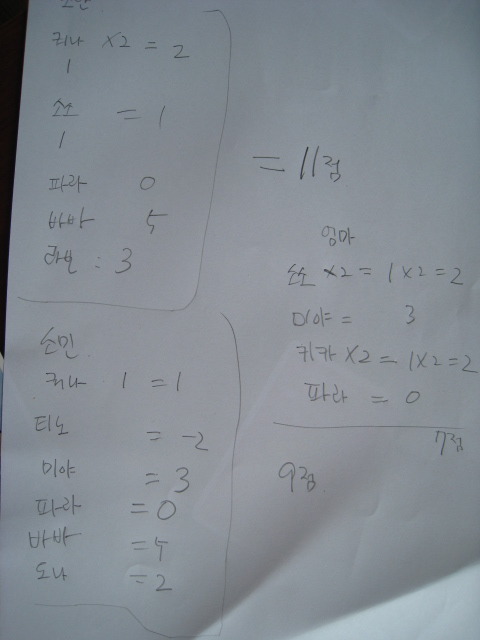 키나 x2 = 2
1
쏘쏘 = 1
1
파라 0
바바 5
라브 : 3
= 11점
소민
키나 1 = 1
티노 = -2
미야 = 3
파라 = 0
바바 = 5
도나 = 2
9점
엄마
쏘쏘 x2 = 1 x2 = 2
미야 = 3
키카 x2 = 1x2 = 2
파라 = 0
7점